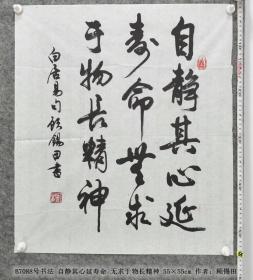 自静其心延
寿命無求
于物长精神
白居易句顾锡田书
B7088号书法 自静其心延寿命 无求于物长精神 55×55cm 作者：顾锡田